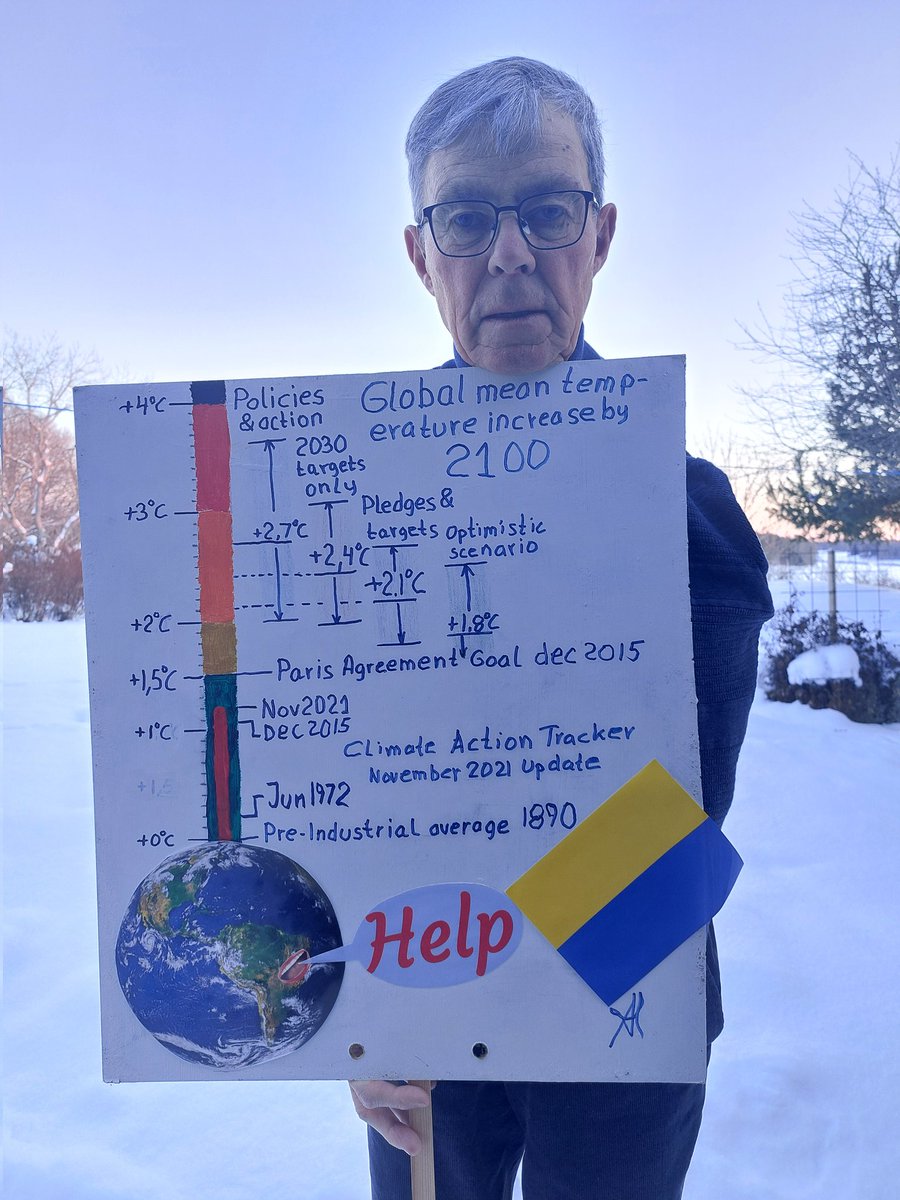 Global mean temp-
erature increase by
2100
+4°C
Policies
& action
2030
targets
only
+3°C
Pledges &
targets
Optimistic
scenario
+2,7°C
+2,4°C
+2,1°C
+1,8°C
+2°C
+1,5°C
Paris Agreement Goal dec 2015
Nov2021
Dec 2015
+1°C
Climate Action Tracker
November 2021 Update
Jun1972
+0°C
Pre-Industrial average 1890
Help